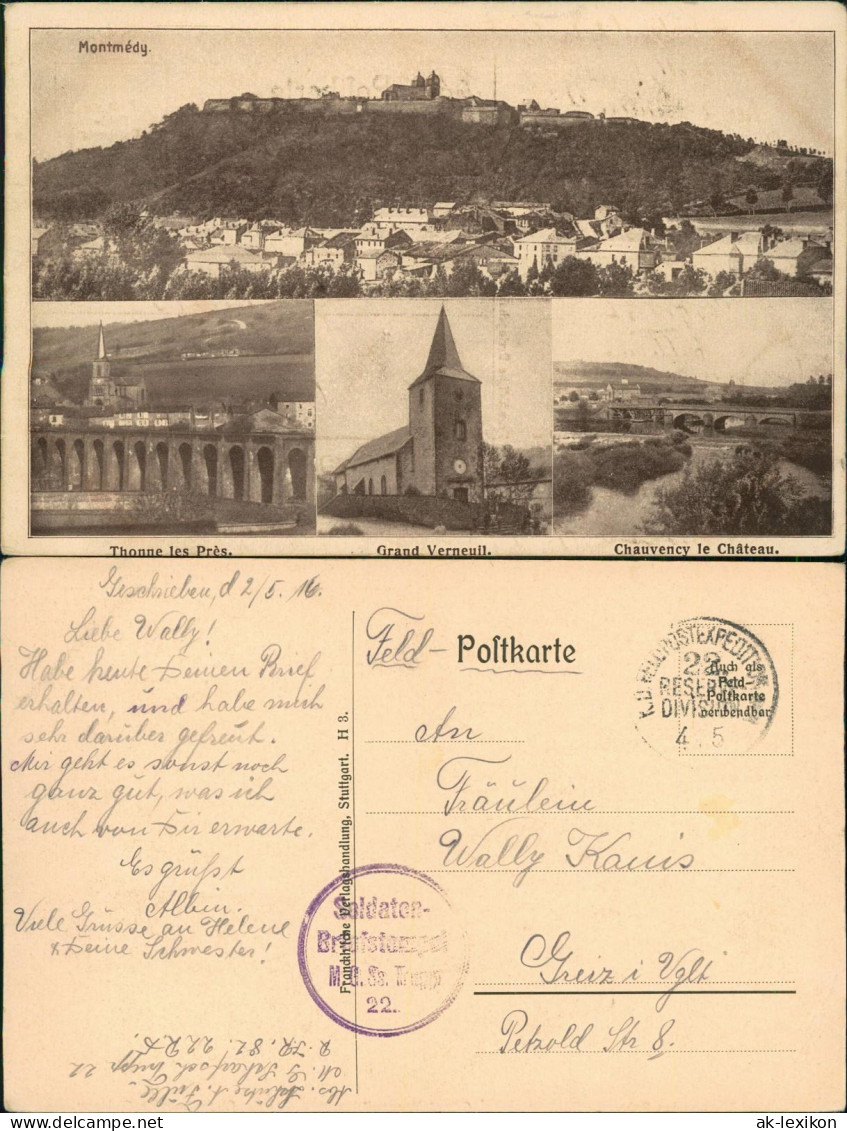 Montmédy.
Thonne les Près.
Grand Verneuil.
Chauvency le Château.
Geschrieben, d 2/5. 16.
Liebe Wally!
Habe heute Deinen Brief
erhalten, und habe mich
sehr darüber gefreut.
Mir geht es sonst noch
ganz gut, was ich
auch von Dir erwarte.
Es grüßt
Albin.
Viele Grüsse an Helene
& Deine Schwester!
Abs. Schütze
M. G. Scharfsch. trupp 22
R. I. R. 82. 22 R. D.
Franckh'sche Verlagshandlung, Stuttgart. H 3.
Feld- Poſtkarte
K. D. FELDPOSTEXPEDITION
22.
RESERVE
DIVISION
4. 5
Auch als
Feld-
Poſtkarte
verwendbar
An
Fräulein
Wally Kanis
Greiz i Vgtl
Petzold Str 8.
Soldaten-
Briefstempel
M.G.Ss. Trupp
22.
oldthing.com
ak-lexikon